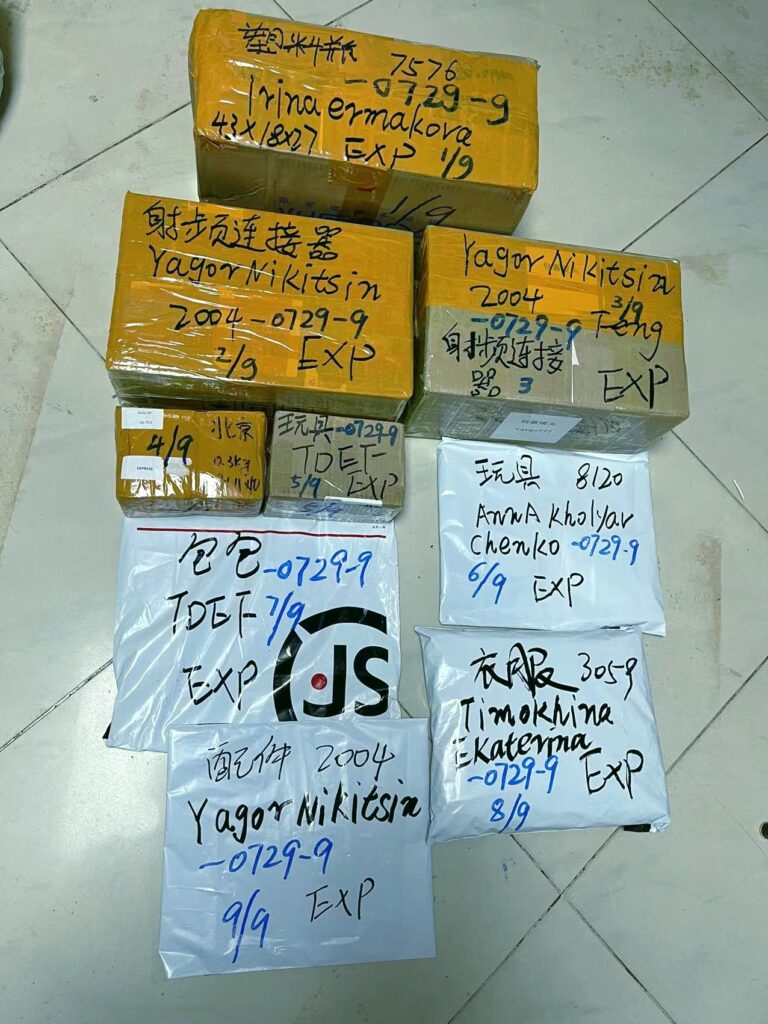 塑料瓶
7576
-0729-9
Irina ermakova
43X18X27 EXP 1/9
1/9
射步频连接器
Yagor Nikitsin
2004-0729-9
2/9 EXP
Yagor Nikitsin
2004 3/9
-0729-9 Teng
射步频连接
器 3 EXP
4/9 北京
0.3Kg
玩具-0729-9
TDET-
5/9 EXP
5/9
玩具 8120
AnnA Kholyar
Chenko -0729-9
6/9 EXP
包包-0729-9
TDET- 7/9
EXP
JS
衣服 3059
Timokhina
Ekaterina
-0729-9 EXP
8/9
配件 2004
Yagor Nikitsin
-0729-9
9/9 EXP